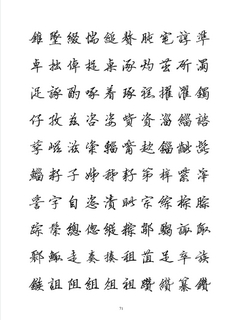 錐墜綴惴縋贅肫窀諄準
卓拙倬捉桌涿灼茁斫濁
浞諑酌啄着琢禚擢濯鐲
仔孜茲咨姿貲資淄緇諮
孳嵫滋粢輜觜趑錙齜髭
鯔籽子姊秭耔笫梓紫滓
訾字自恣漬眥宗綜棕腙
踪鬃總偬縱粽鄒騶諏陬
鄹鯫走奏揍租菹足卒族
鏃詛阻組俎祖躦纘纂鑽